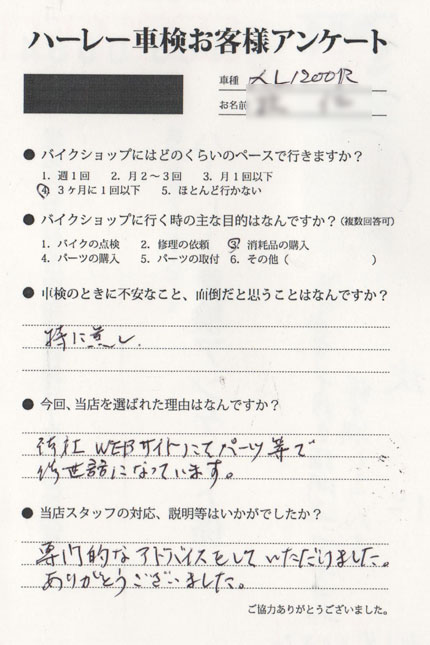 ハーレー車検お客様アンケート
車種 XL1200R
お名前
● バイクショップにはどのくらいのペースで行きますか?
1. 週1回 2. 月2〜3回 3. 月1回以下
4. 3ヶ月に1回以下 5. ほとんど行かない
● バイクショップに行く時の主な目的はなんですか?(複数回答可)
1. バイクの点検 2. 修理の依頼 3. 消耗品の購入
4. パーツの購入 5. パーツの取付 6. その他( )
● 車検のときに不安なこと、面倒だと思うことはなんですか?
特に無し
● 今回、当店を選ばれた理由はなんですか?
御社WEBサイトにてパーツ等で
御世話になっています。
● 当店スタッフの対応、説明等はいかがでしたか?
専門的なアドバイスをしていただけました。
ありがとうございました。
ご協力ありがとうございました。